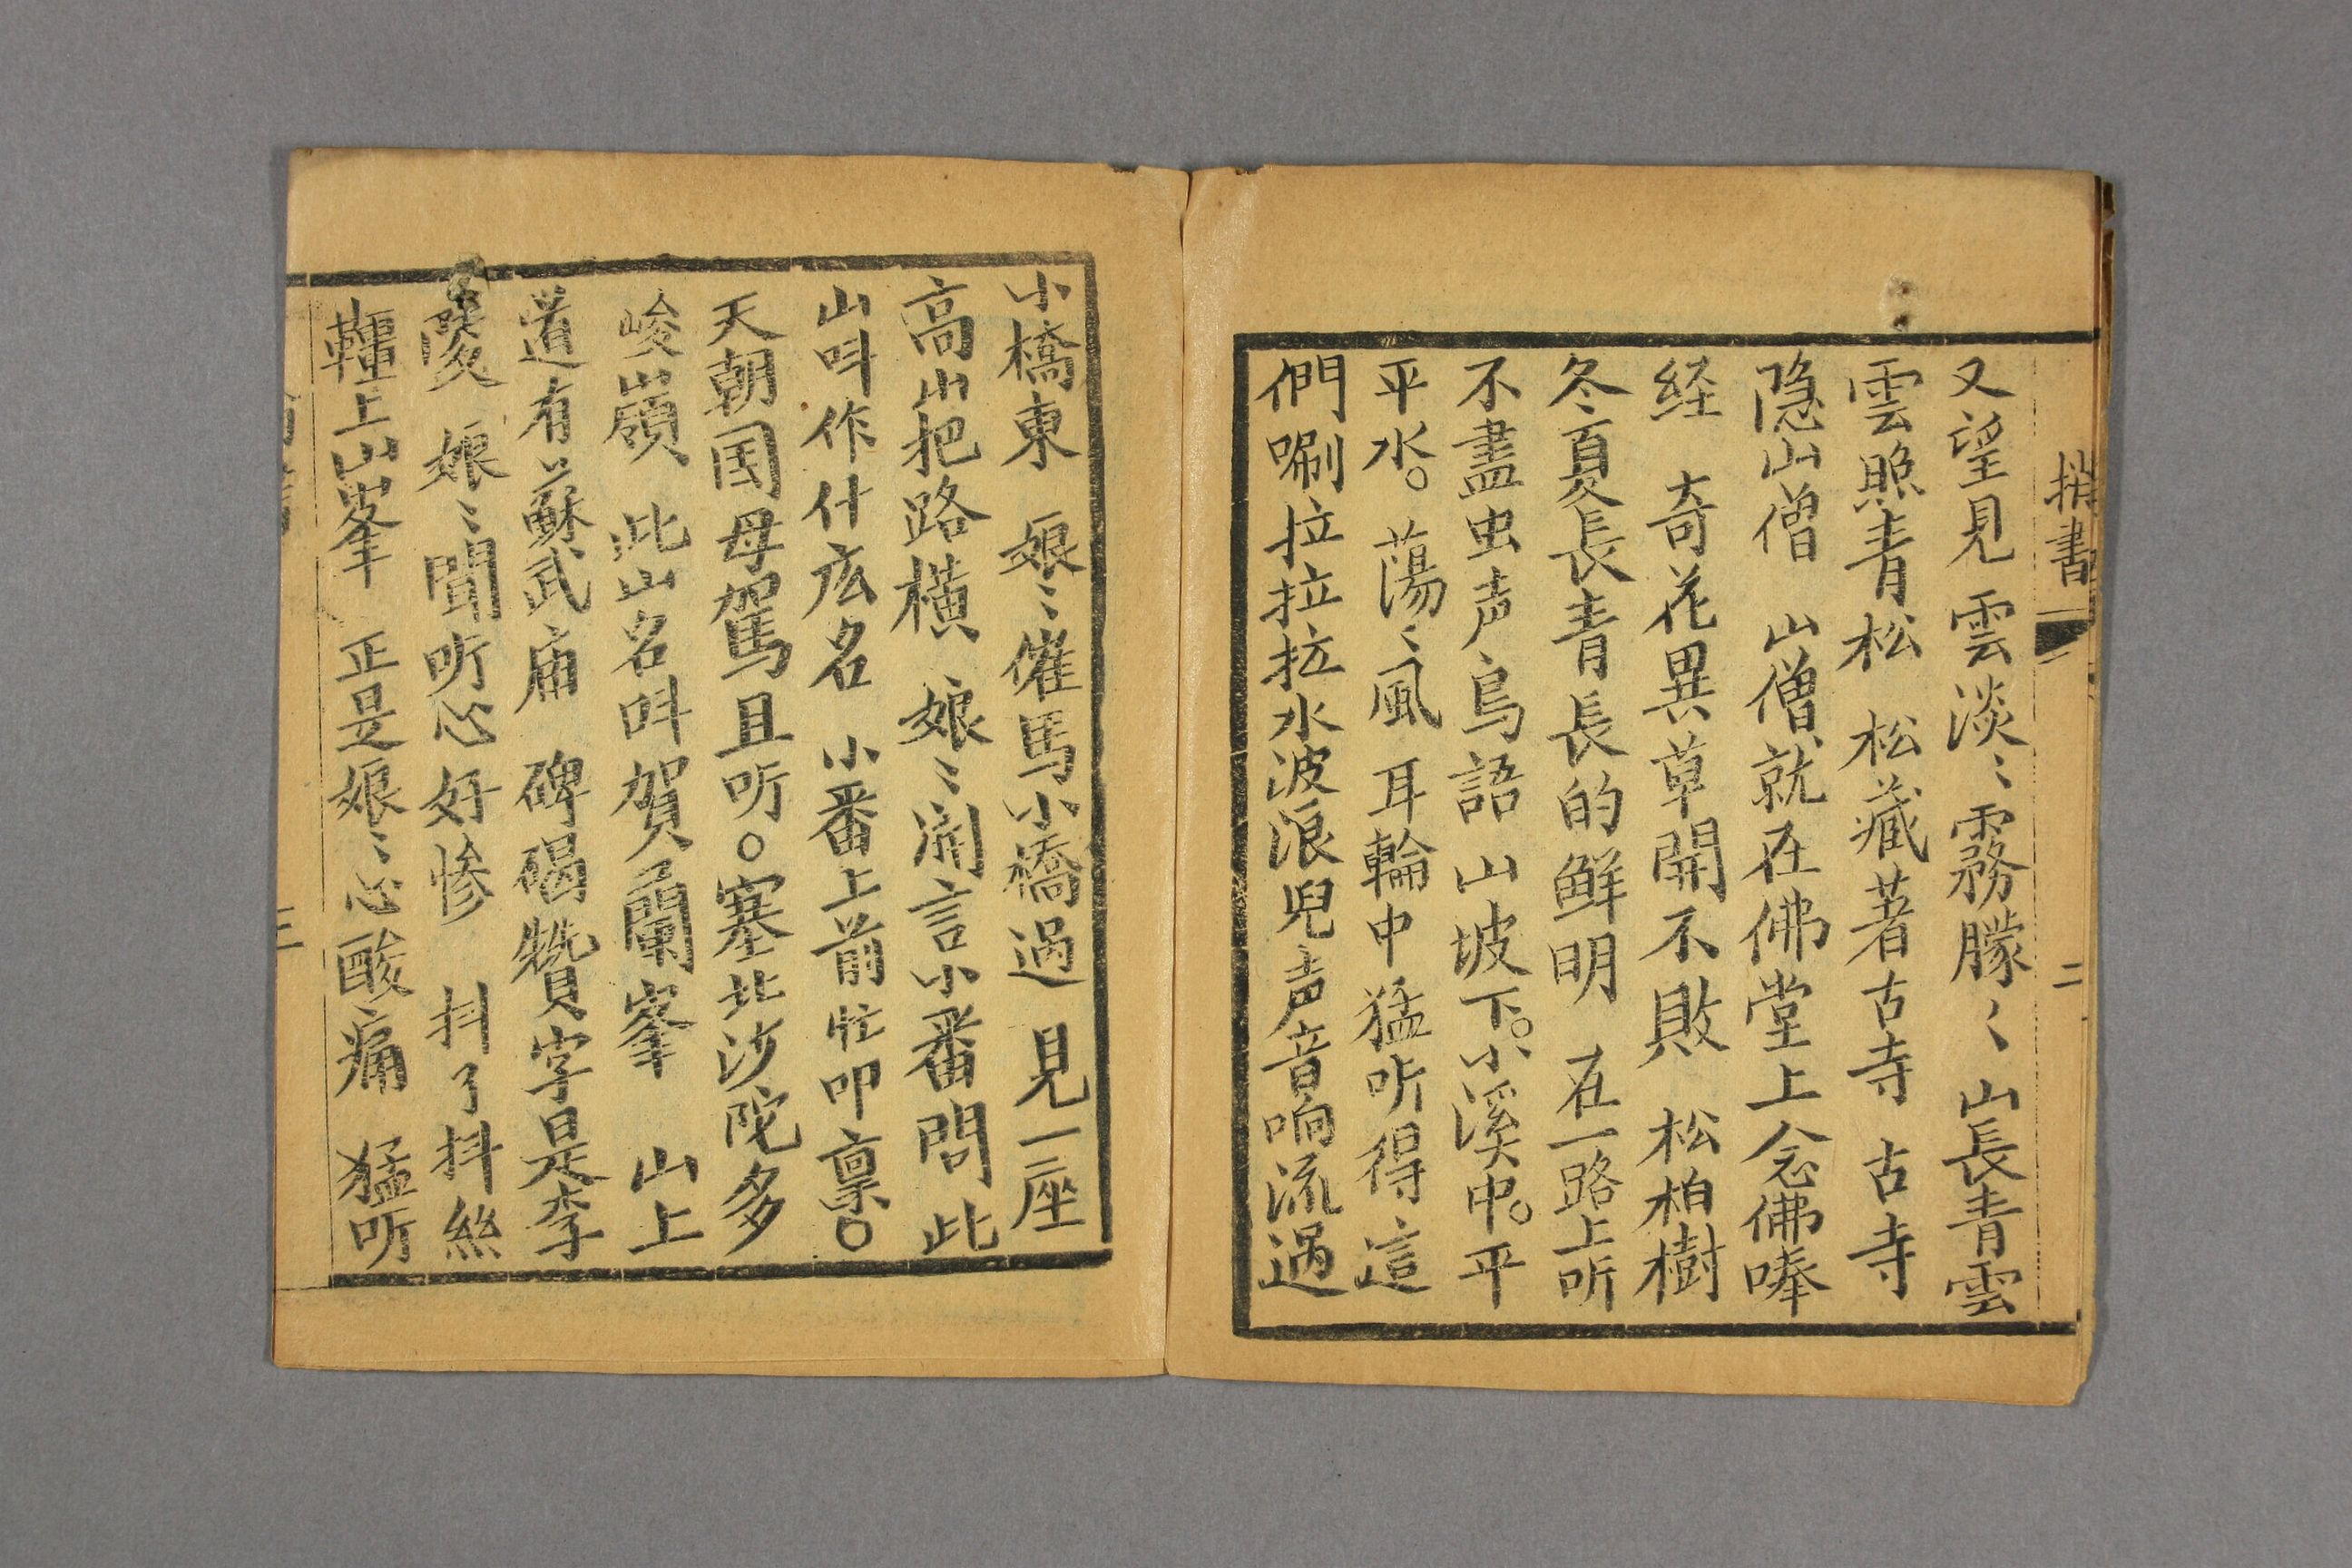 捎書 二
又望見雲淡〻霧朦〻山長青雲
雲照青松 松藏著古寺 古寺
隐山僧 山僧就在佛堂上念佛唪
経 奇花異草開不敗 松柏樹
冬夏長青長的鲜明 在一路上听
不盡虫声鳥語 山坡下。小溪中。平
平水。蕩〻風 耳輪中猛听得這
們唰拉拉拉水波浪兒声音响流過
小橋東 娘〻催馬小橋過 見一座
高山把路横 娘〻開言小番問 此
山呌作什庅名 小番上前忙叩禀。
天朝国母駕且听。塞北沙陀多
峻嶺 此山名呌賀蘭峯 山上
道有蘇武庙 碑碣賛字是李
陵 娘〻聞听心好惨 抖了抖絲
韁上山峯 正是娘〻心酸痛 猛听
三